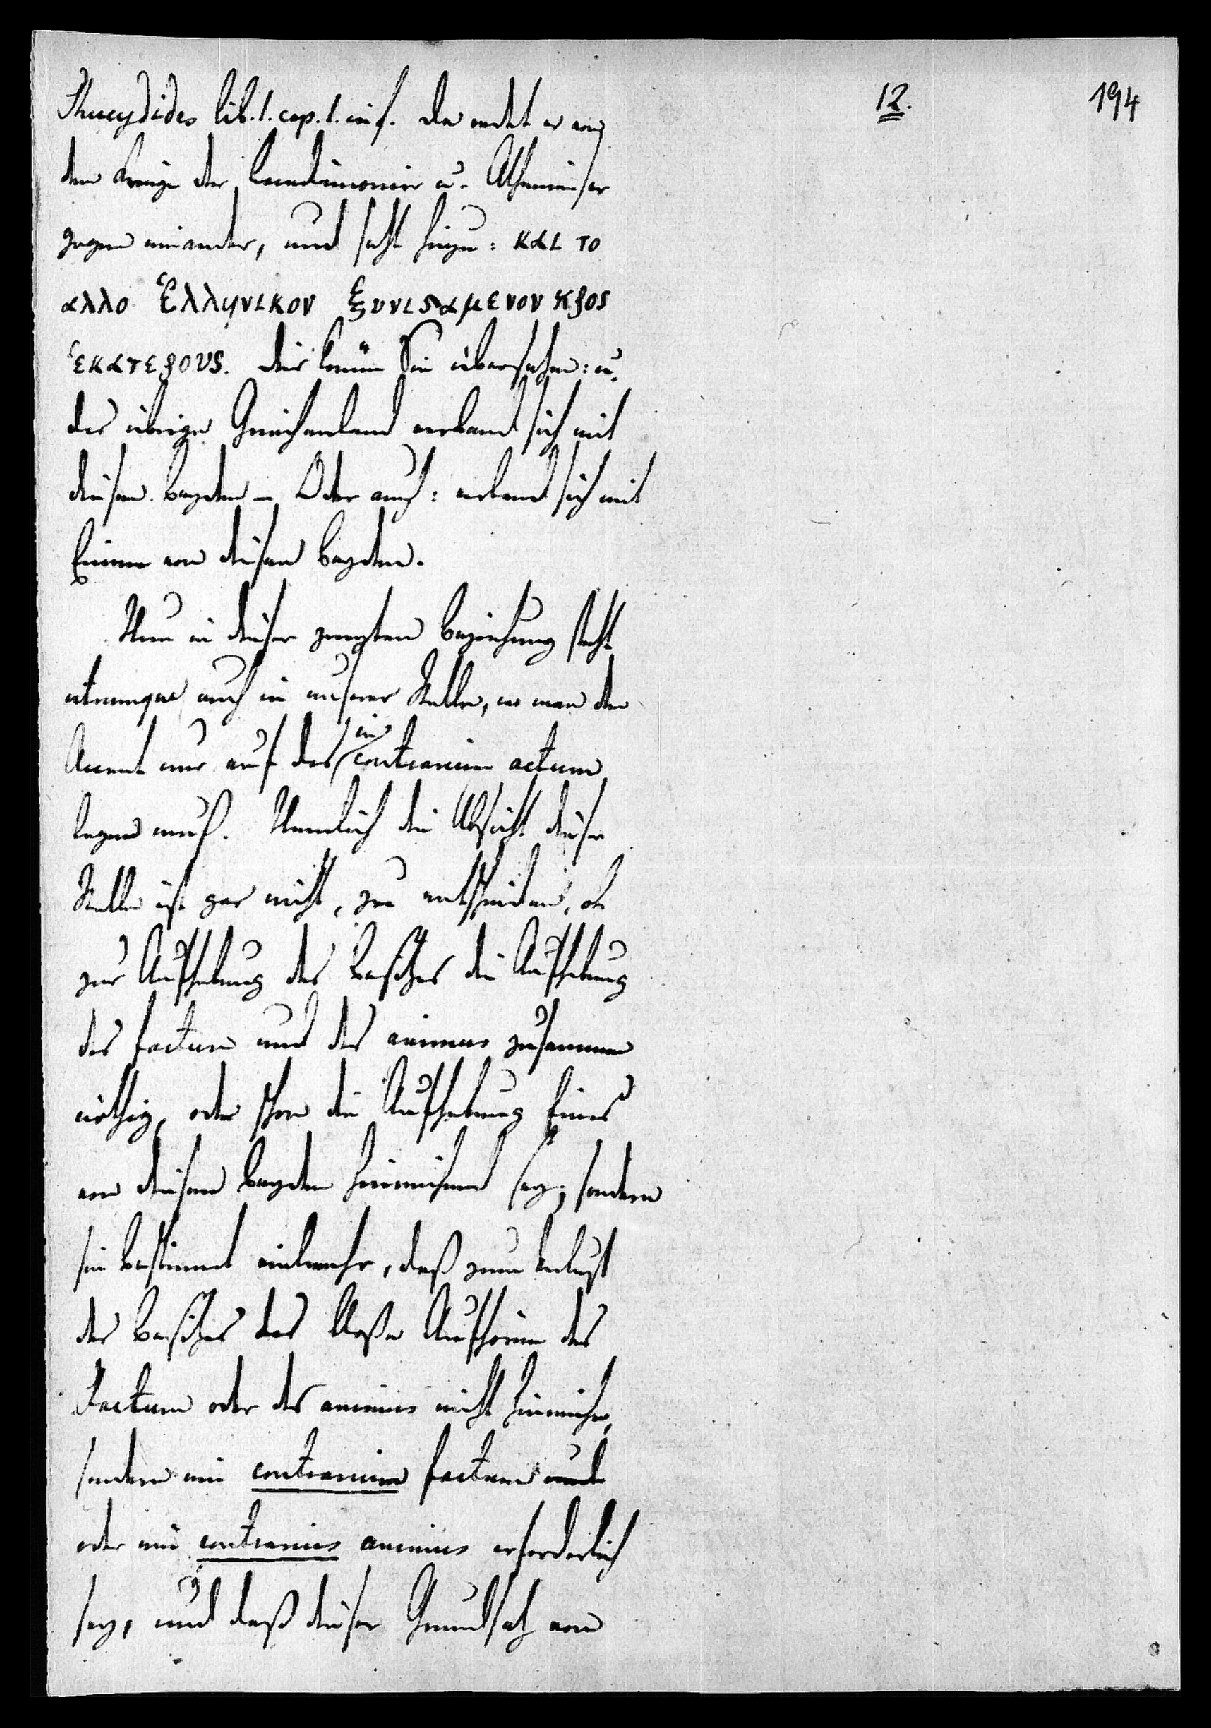 12.
194
Thucydides lib. 1. cap. 1. inf. Da redet er von
dem Kriege der Lacedämonier u. Athenienser
gegen einander, und setzt hinzu: και το
αλλο Ἑλληνικον ξυνιϛαμενον προς
ἑκατερους. Dies können Sie übersetzen: u.
das übrige Griechenland verband sich mit
diesen beyden – Oder auch: verband sich mit
Einem von diesen beyden.
Nun in dieser zweyten Beziehung steht
utrumque auch in unserer Stelle, wo man den
Accent nur auf das in contrarium actum
legen muß. Nemlich die Absicht dieser
Stelle ist gar nicht, zu entscheiden, ob
zur Aufhebung des Besitzes die Aufhebung
des factum und des animus zusammen
nöthig, oder schon die Aufhebung Eines
von diesen beyden hinreichend sey; sondern
sie bestimmt vielmehr, daß zum Verlust
des Besitzes das bloße Aufhören des
Factum oder des animus nicht hinreiche,
sondern ein contrarium factum und
oder ein contrarius animus erforderlich
sey, und daß dieser Grundsatz von